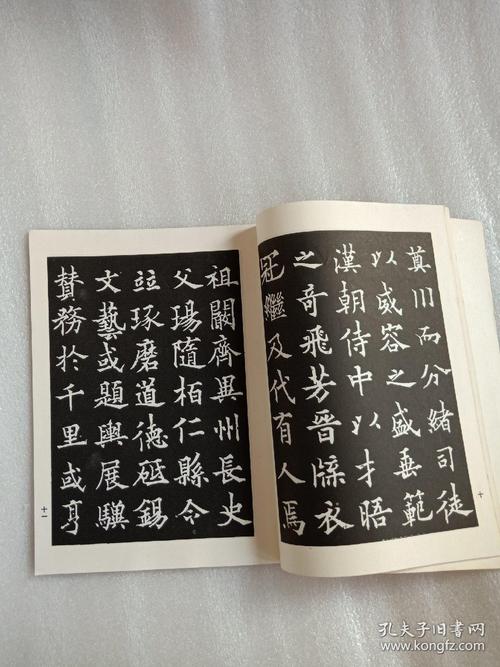 奠川而分緒司徒
以威容之盛垂範
漢朝侍中以才晤
之奇飛芳晉牒衣
冠繼及代有人焉
十
祖闞齊異州長史
父瑒隨栢仁縣令
竝琢磨道德砥錫
文藝或題輿展驥
贊務於千里或亨
十一
孔夫子旧书网
www.kongfz.com